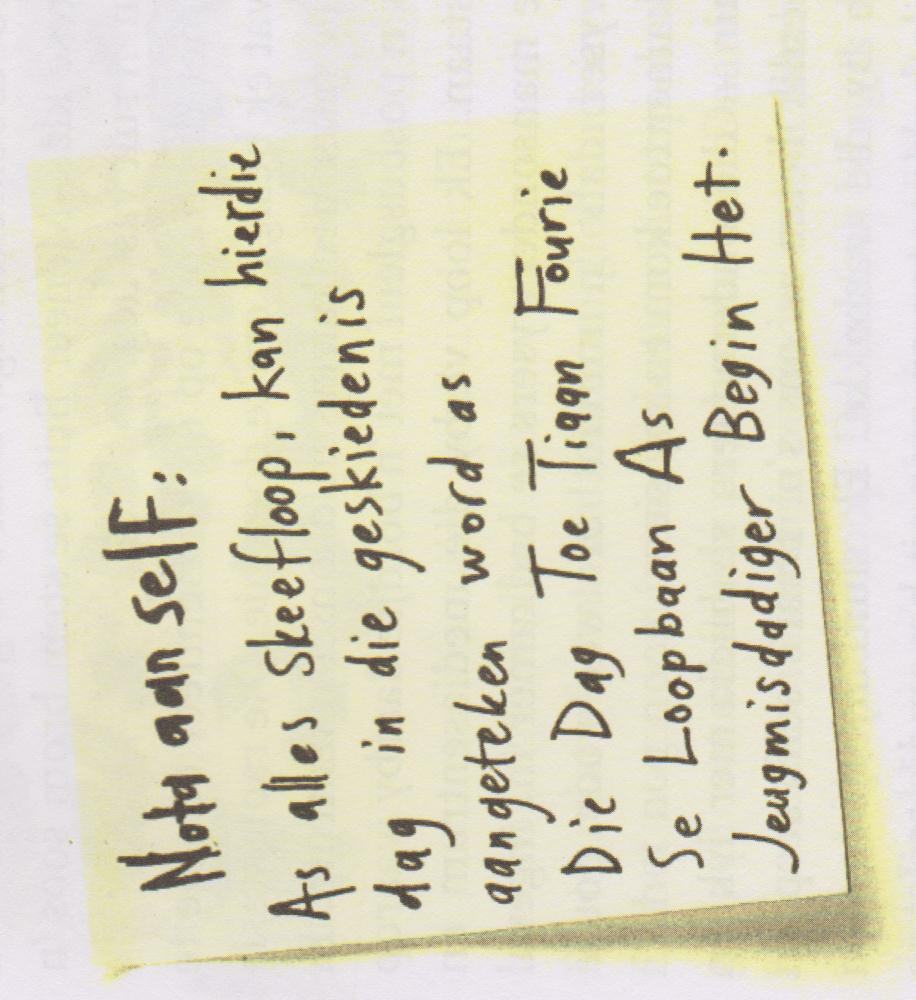 Nota aan self:
As alles skeefloop, kan hierdie
dag in die geskiedenis
aangeteken word as
Die Dag Toe Tiaan Fourie
Se Loopbaan As
Jeugmisdadiger Begin Het.